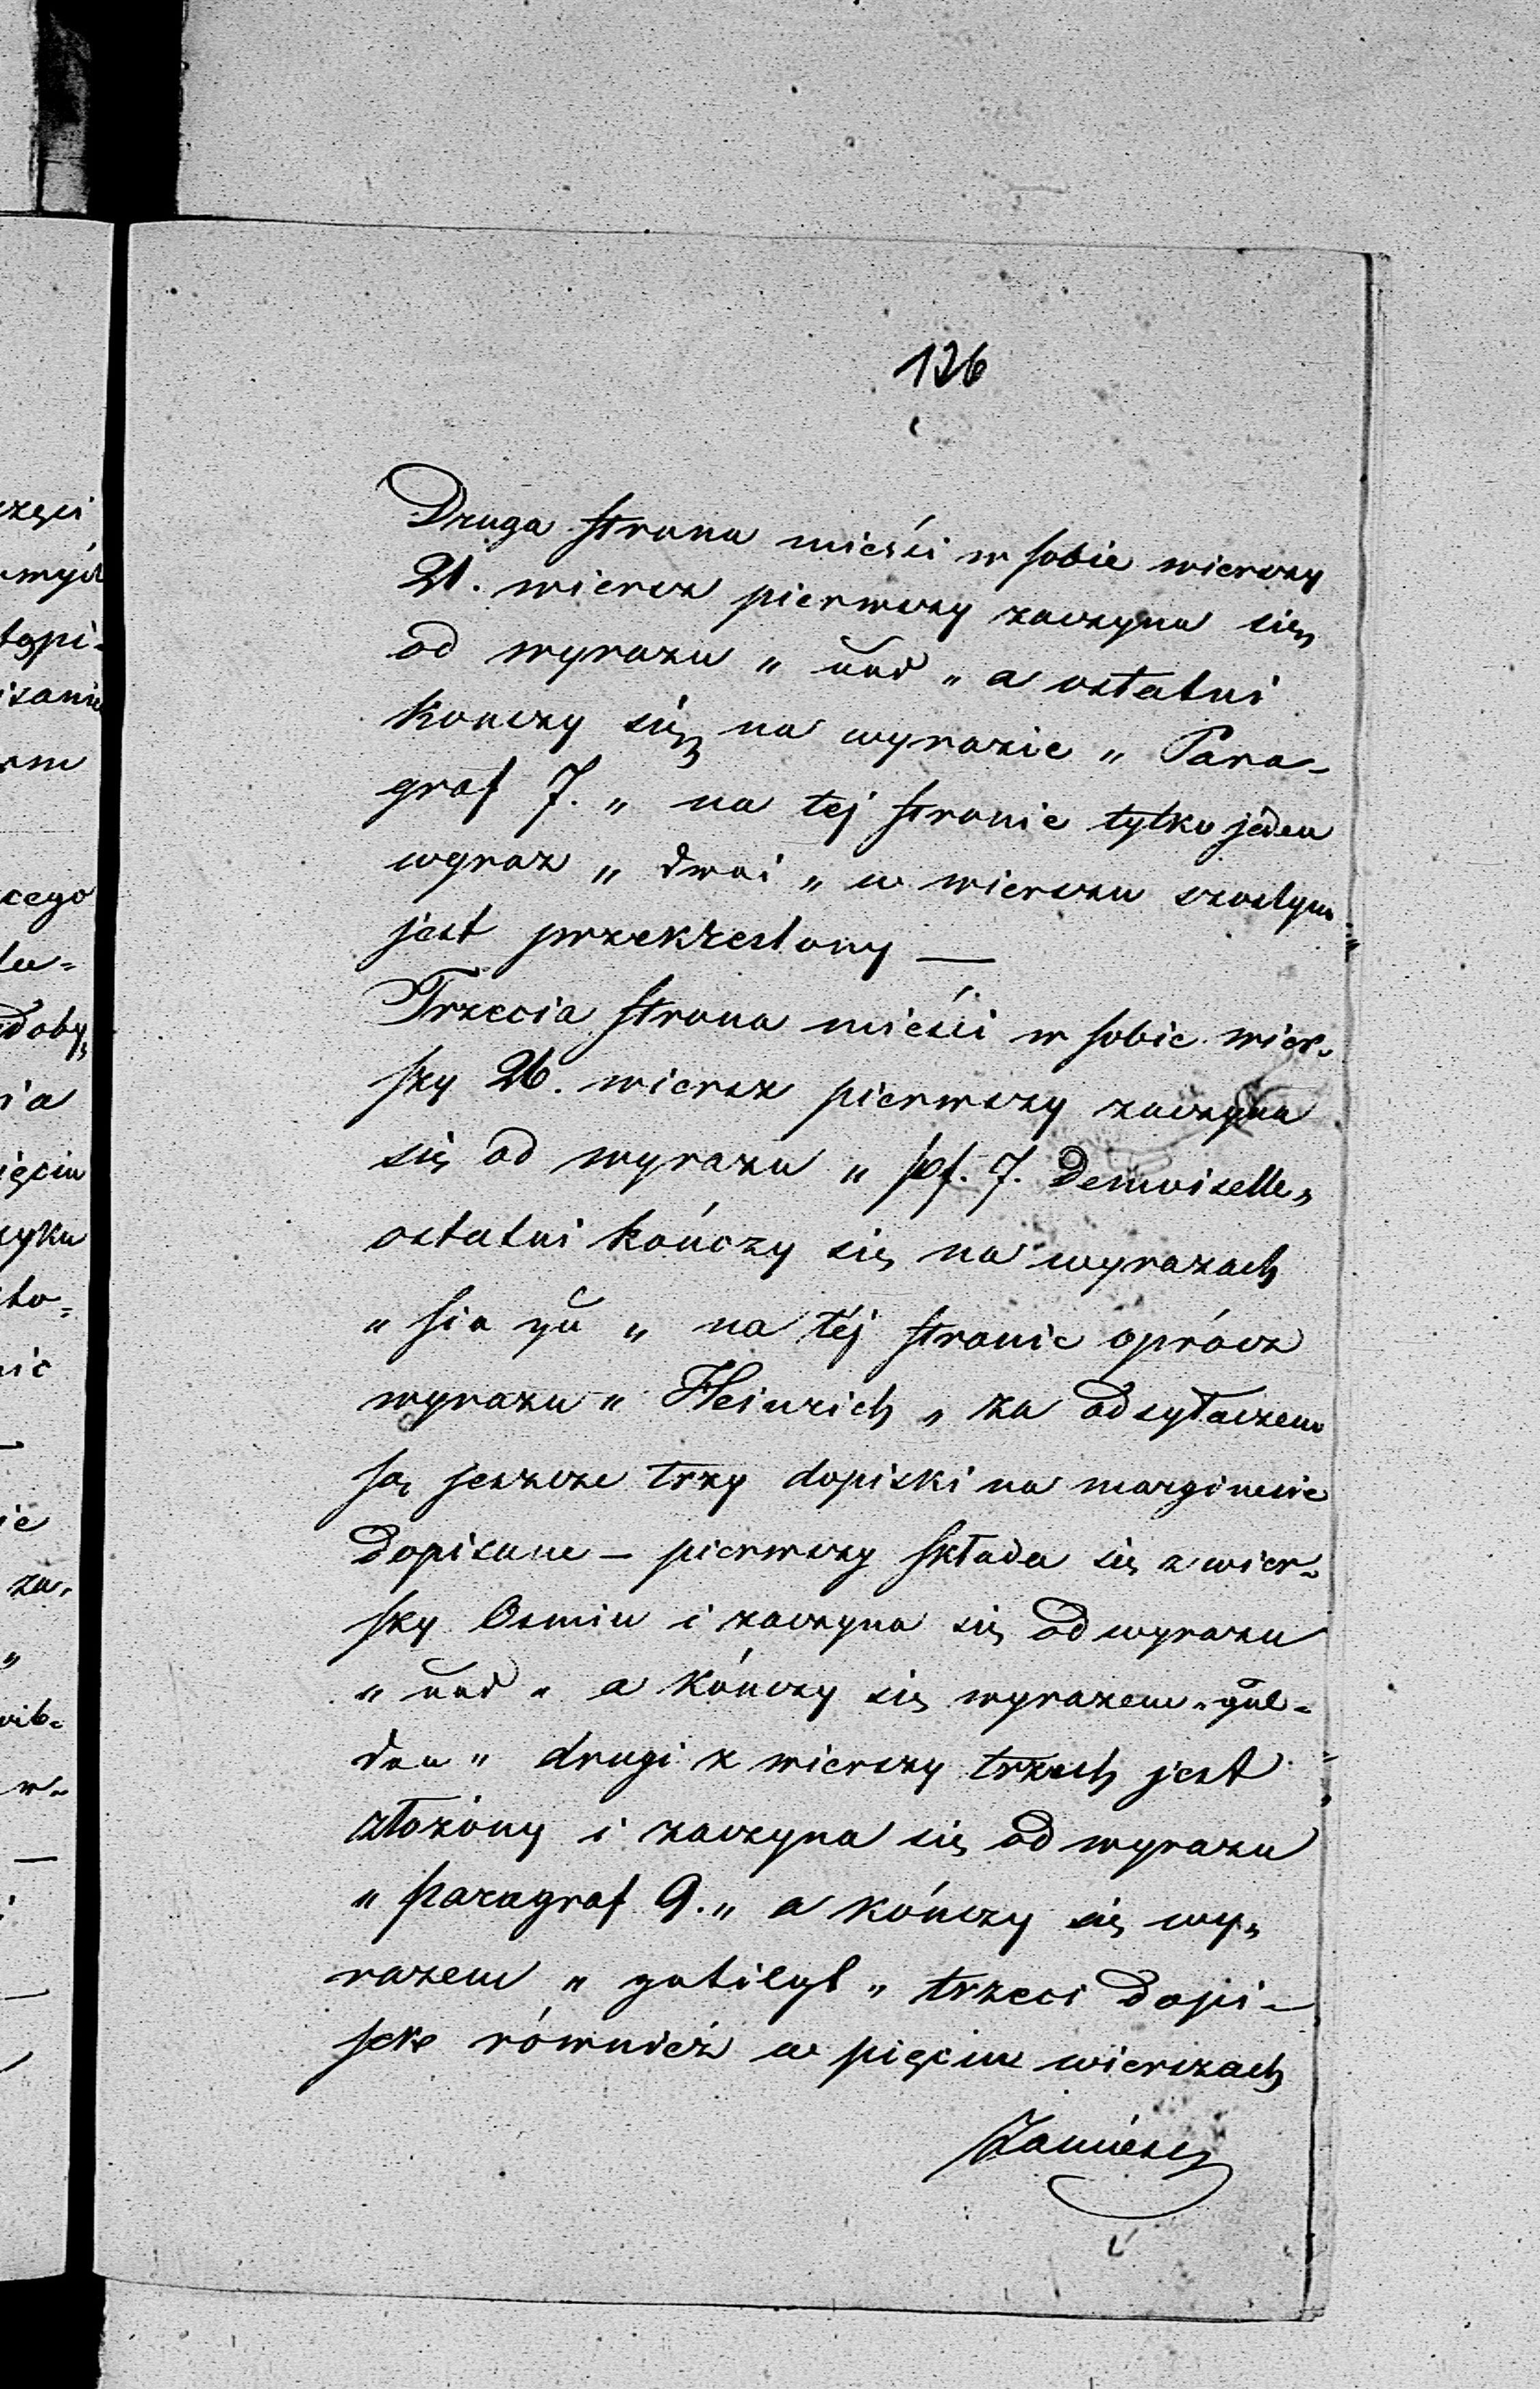 126
Druga strona mieści w sobie wierszy
21. wiersz pierwszy zaczyna się
od wyrazu „ und „ a ostatni
kończy się na wyrazie „ Para-
graf 7. „ na tej stronie tylko jeden
wyraz „ drei „ w wierszu szostym
jest przekreslony —
Trzecia strona mieści w sobie wier-
szy 26. wiersz pierwszy zaczyna
się od wyrazu „ pf. 7. Demoiselle „
ostatni kończy się na wyrazach
„ sie zu „ na téj stronie oprócz
wyrazu „ Heinrich „ za odsyłaczem
są jeszcze trzy dopiski na marginesie
dopisane — pierwszy składa się z wier-
szy Osmiu i zaczyna się od wyrazu
„ und „ a kończy się wyrazem „ gul-
den „ drugi z wierszy trzech jest
złożony i zaczyna się od wyrazu
„ paragraf 9. „ a kończy się wy-
razem „ „ trzeci dopi-
sek również w pięciu wierszach